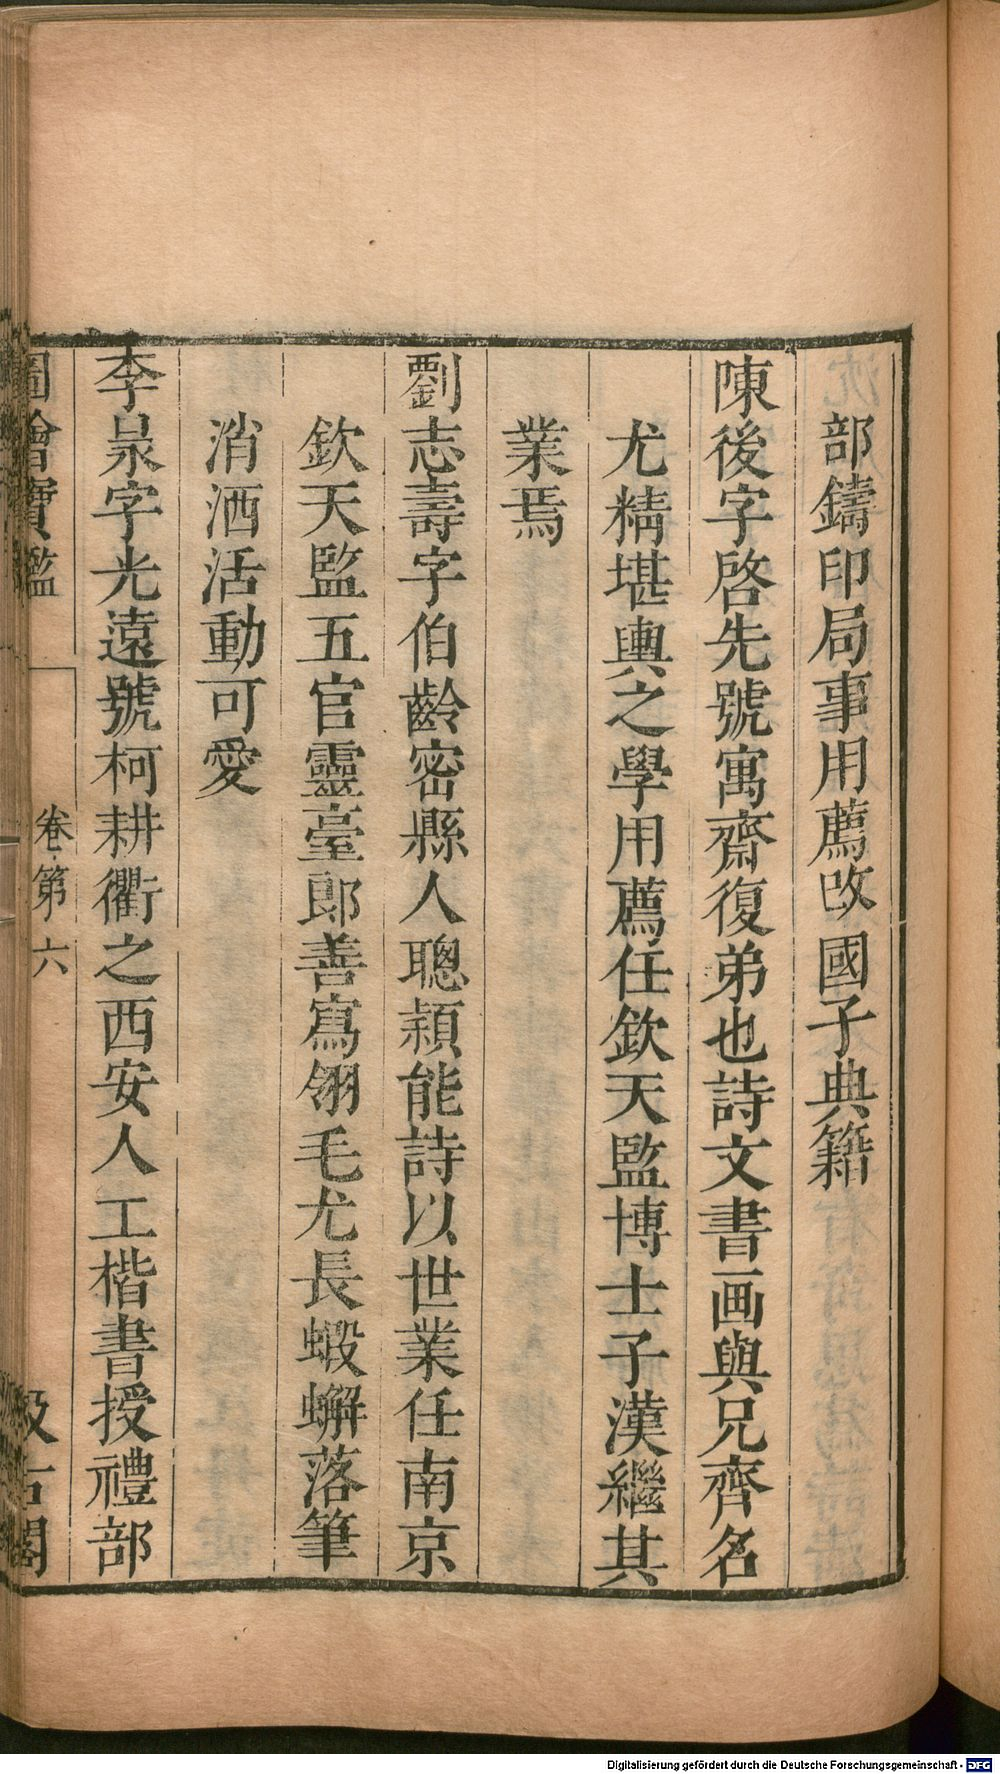 部鑄印局事用薦改國子典籍
陳後字啓先號寓齋復弟也詩文書画與兄齊名
尤精堪輿之學用薦任欽天監博士子漢繼其
業焉
劉志壽字伯齡密縣人聰穎能詩以世業任南京
欽天監五官靈臺郎善寫翎毛尤長蝦蠏落筆
消洒活動可愛
李泉字光遠號柯耕衢之西安人工楷書授禮部
圖繪寶鑑 卷第六 汲古閣
Digitalisierung gefördert durch die Deutsche Forschungsgemeinschaft - DFG